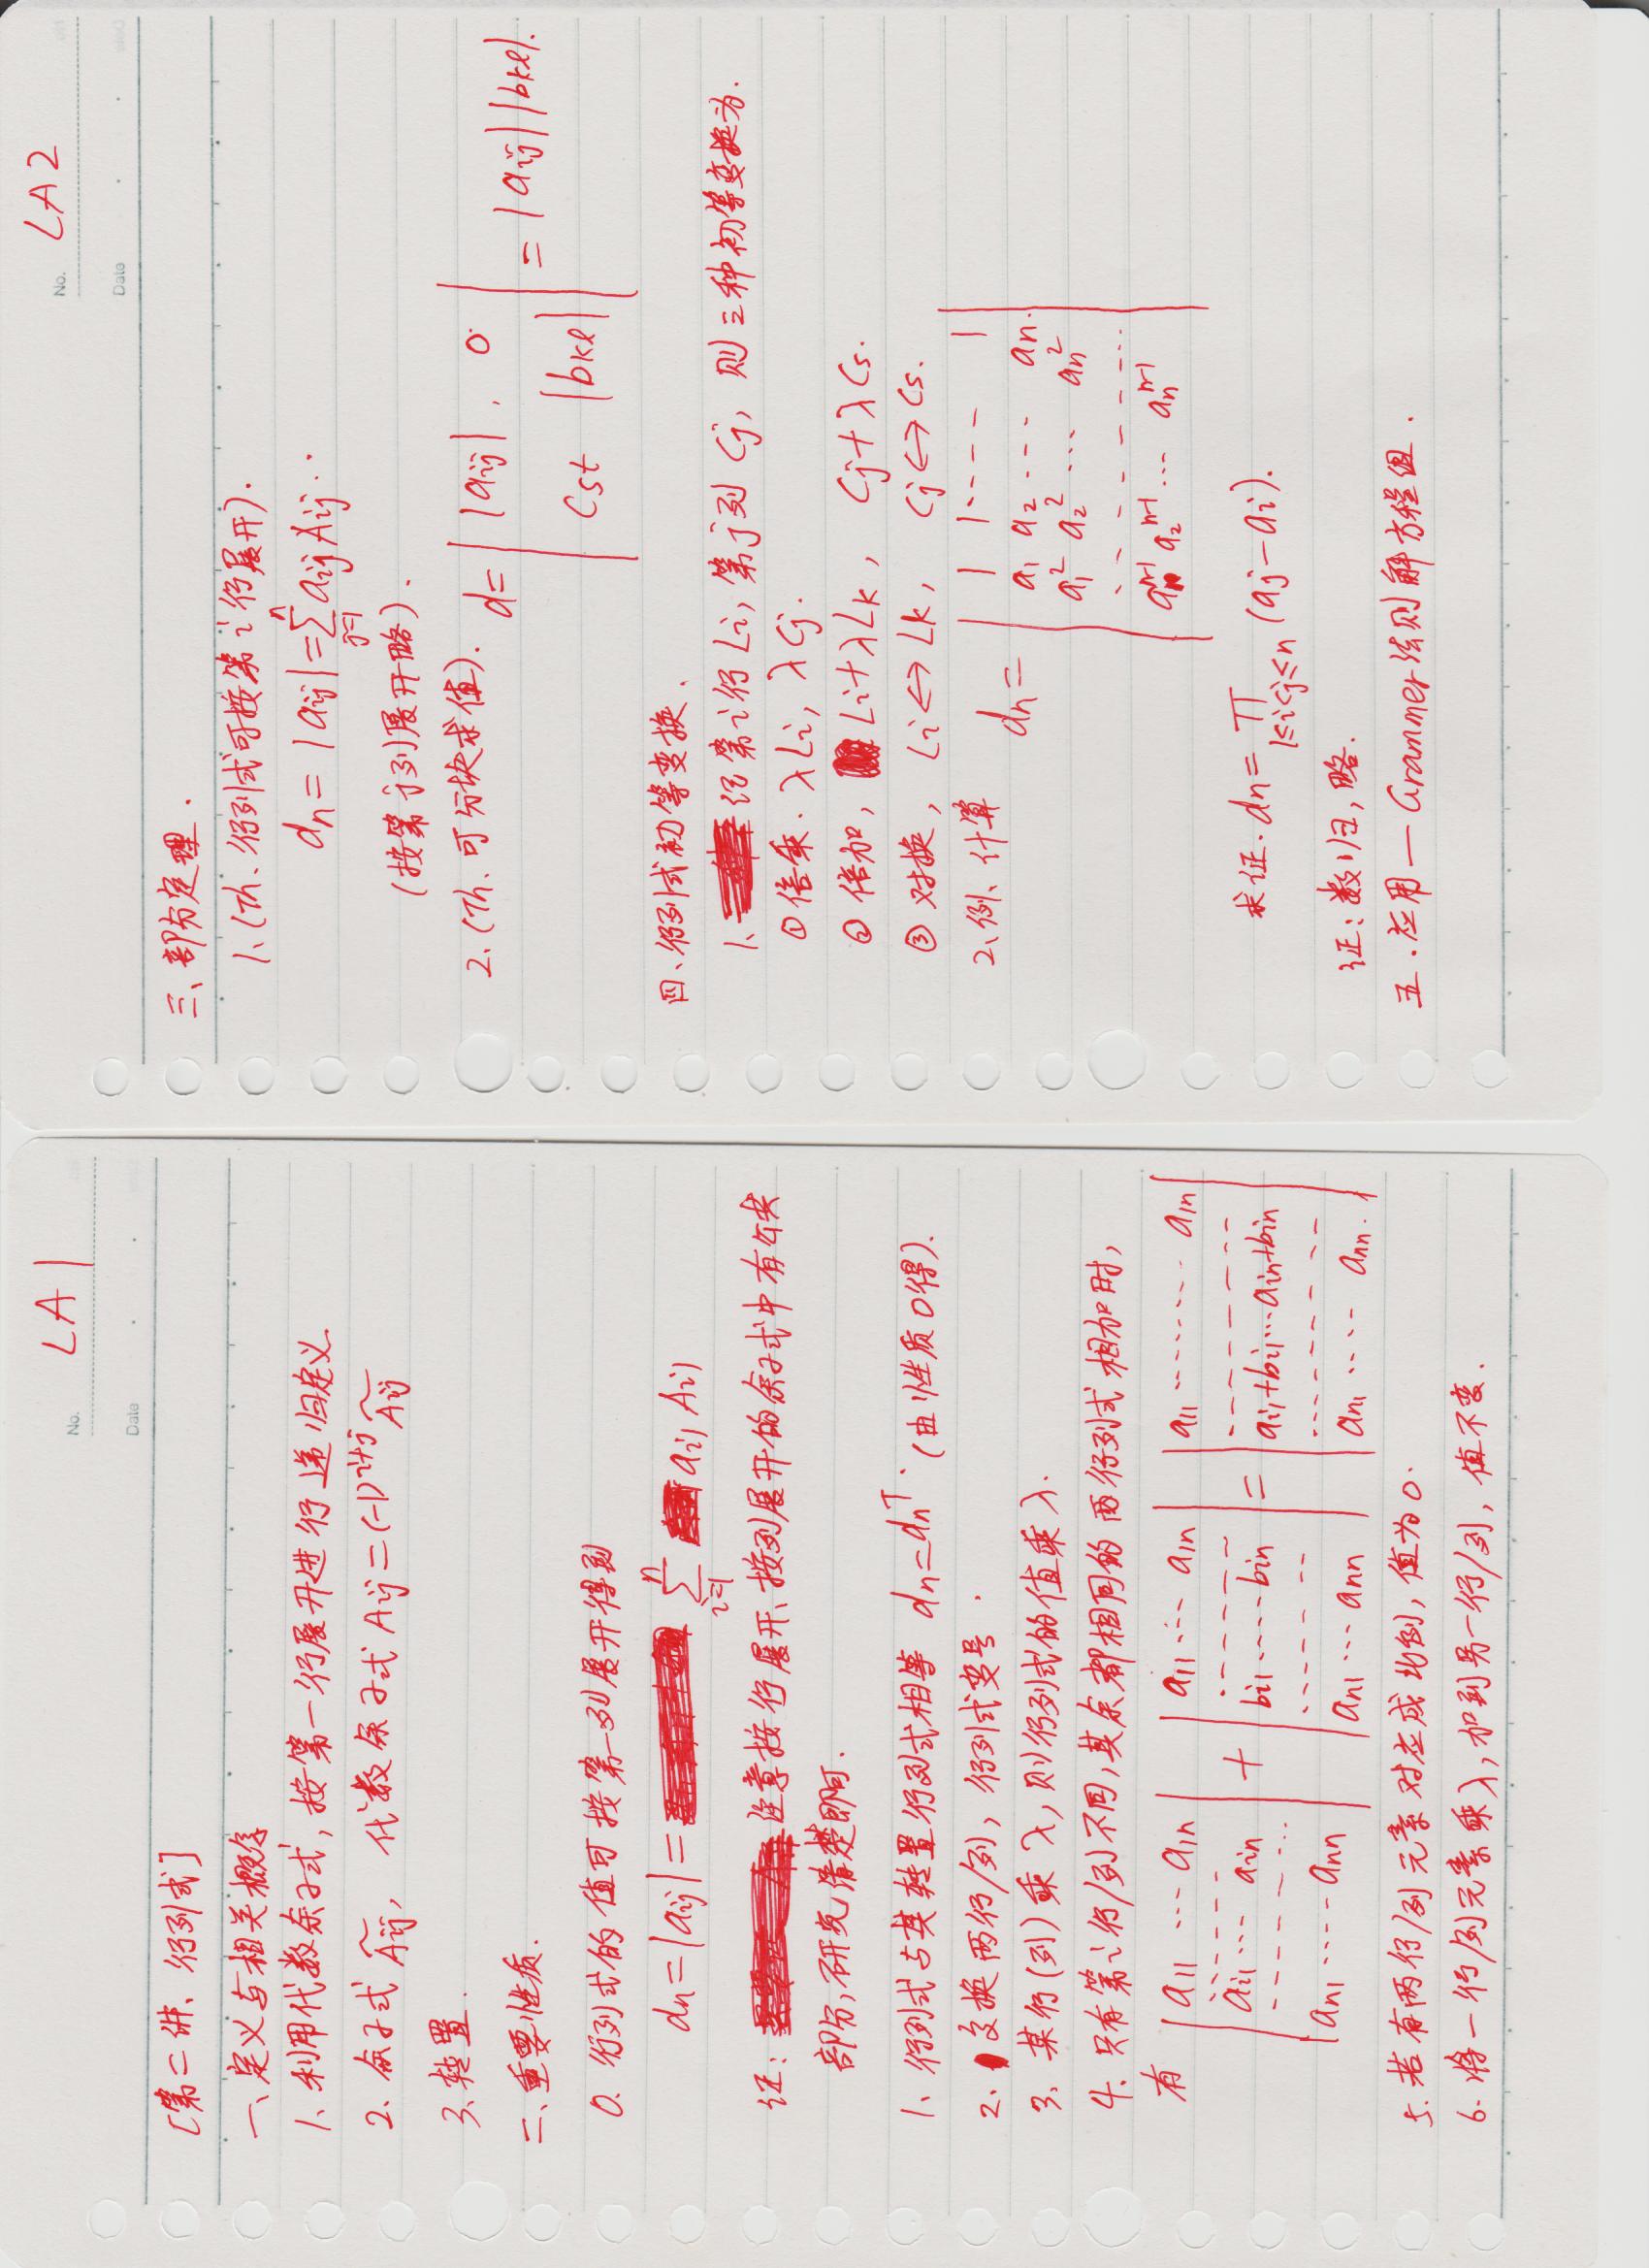 No. LA1
Date
[第二讲、行列式]
一、定义与相关概念
1、利用代数余子式，按第一行展开进行递归定义.
2、余子式 \widetilde{A_{ij}}，代数余子式 A_{ij}=(-1)^{i+j}\widetilde{A_{ij}}
3、转置.
二、重要性质.
0. 行列式的值可按第一列展开得到
d_n=|a_{ij}|= \sum_{i=1}^{n} a_{i1} A_{i1}
证: 注意按行展开、按列展开的余子式中有公共
部分，研究清楚即可.
1、行列式与其转置行列式相等 d_n=d_n^T. (由性质0得).
2. 交换两行/列，行列式变号.
3. 某行(列)乘 λ, 则行列式的值乘 λ.
4. 只有第i行/列不同，其余都相同的两行列式相加时，
有 | a_{11} ⋯ a_{1n} | + | a_{11} ⋯ a_{1n} | = | a_{11} ⋯⋯ a_{1n} |
| a_{i1} ⋯ a_{in} | | b_{i1} ⋯ b_{in} | | a_{i1}+b_{i1} ⋯ a_{in}+b_{in} |
| a_{n1} ⋯ a_{nn} | | a_{n1} ⋯ a_{nn} | | a_{n1} ⋯ a_{nn}. |
5. 若有两行/列元素对应成比例，值为0.
6. 将一行/列元素乘λ, 加到另一行/列，值不变.
No. LA2
Date
三、部分定理.
1、(Th. 行列式可按第i行展开).
d_n= |a_{ij}|=\sum_{j=1}^{n} a_{ij} A_{ij}.
(按第j列展开略).
2. (Th. 可分块求值). d= | |a_{ij}| , 0 | = |a_{ij}||b_{kl}|.
| C_{st} |b_{kl}| |
四、行列式初等变换.
1、记第i行 L_i, 第j列 C_j, 则三种初等变换为.
① 倍乘. λL_i, λC_j.
② 倍加, L_i+λL_k, C_j+λC_s.
③ 对换, L_i↔L_k, C_j↔C_s.
2、例、计算 d_n= | 1 1 ⋯ 1 |
| a_1 a_2 ⋯ a_n. |
| a_1^2 a_2^2 ⋯ a_n^2 |
| a_1^{n-1} a_2^{n-1} ⋯ a_n^{n-1} |
求证. d_n= \prod_{1≤i<j≤n} (a_j-a_i).
证: 数归, 略.
五. 应用—Grammer法则解方程组.